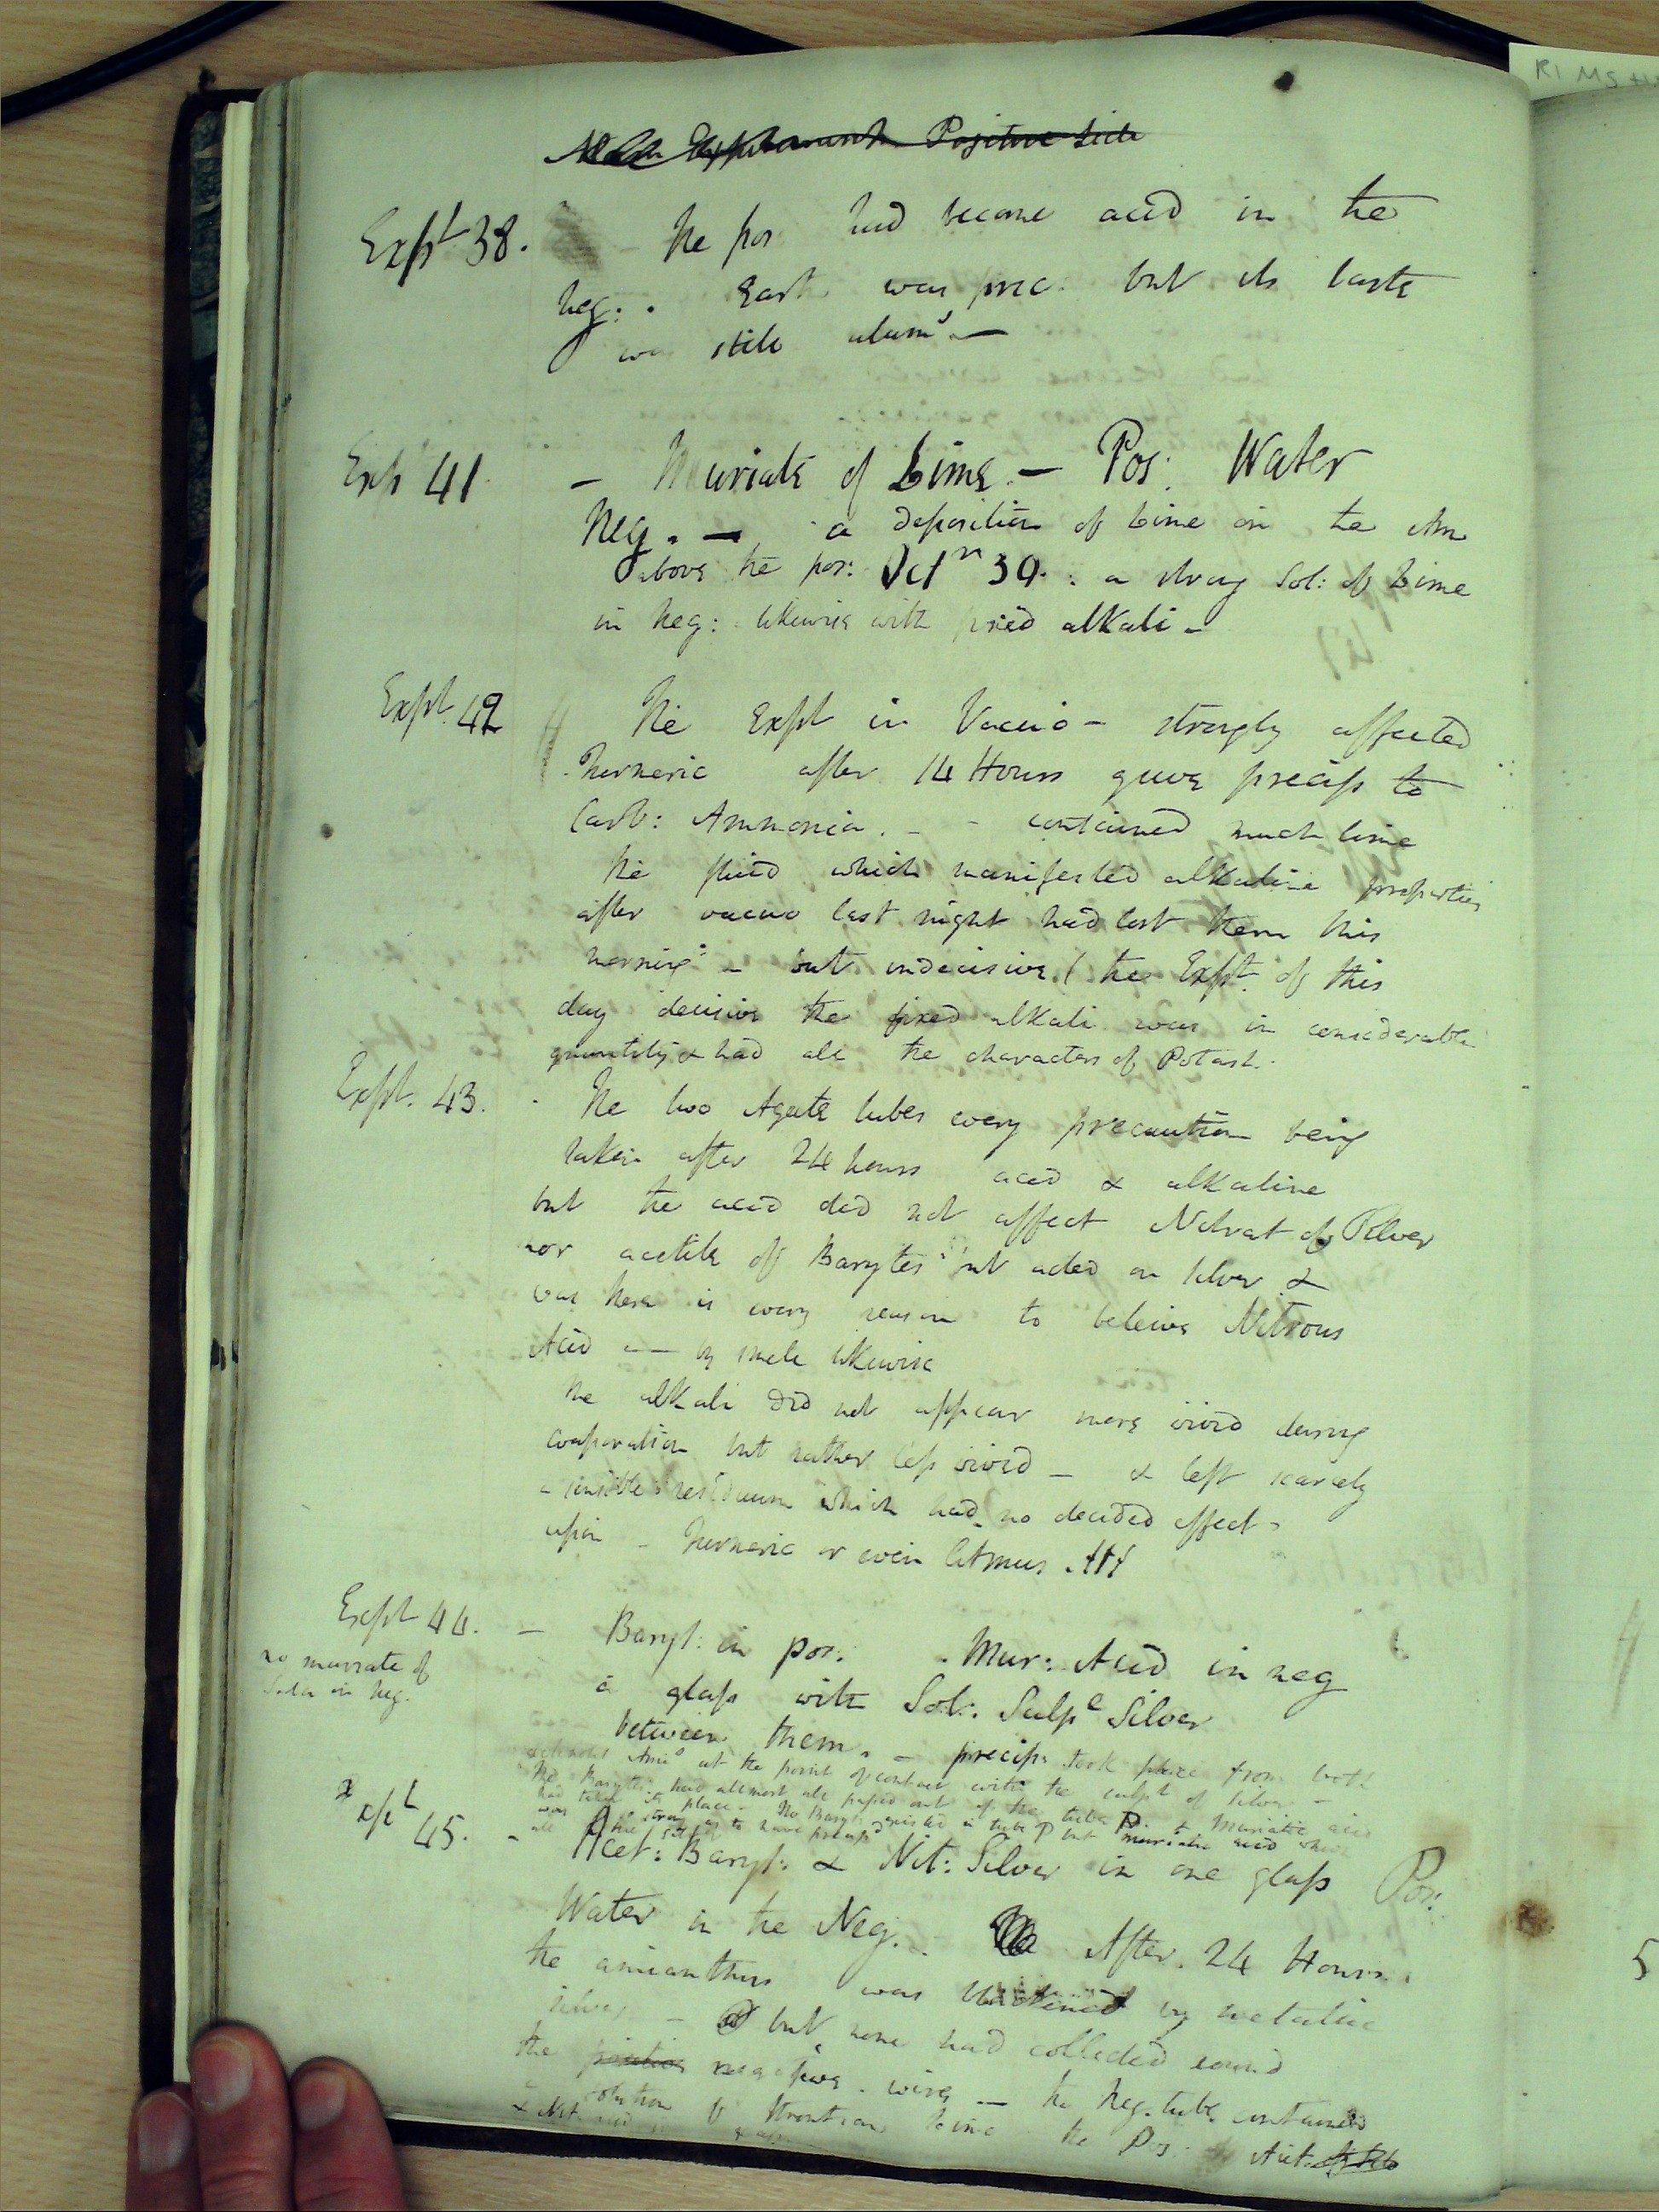 Positive side
Expt 38. - The pos had become acid in the
neg: . Earth was prec: but its taste
was still alum^s -
Expt 41 - Muriate of Lime - Pos: Water
Neg. - a deposition of Lime on the Am
above the pos: a strong Sol: of Lime
in Neg: likewise with fixed alkali -
Expt. 42 The Expt in Vacuo - strongly affected
Turmeric after 14 Hours gave precip to
Carb: Ammonia. - - contained much lime
The fluid which manifested alkaline properties
after vacuo last night had lost them this
morning - but indecisive ( the Expt. of this
day decisive the fixed alkali was in considerable
quantity & had all the characters of Potash.
Expt. 43. The two Agate tubes every precaution being
taken after 24 hours acid & alkaline
but the acid did not affect Nitrat of Silver
nor acetite of Barytes but acted on silver &
was there is every reason to beleive Nitrous
Acid - by smell likewise
The alkali did not appear more vivid during
evaporation but rather less vivid - & left scarcely
a sensible residuum which had no decided effect
upon - Turmeric or even litmus
Expt 44. - Baryt: in pos: Mur: Acid in neg
no muriate of
in Neg.
a glass with Sol: Sulp^e Silver
between them. - precip: took place from both
at the point of contact with the sulpt of silver -
The Barytes had allmost all passed out of the tube P. & Muriatic acid
had taken its place - No Baryt existed in tube P but muriatic acid which
was so strong as to have precip^d
all the
Expt 45. - Acet: Baryt: & Nit: Silver in one glass Pos:
Water in the Neg. After 24 Hours
the amianthus was by metallic
silver - but none had collected round
the positive negative wire - the Neg. tube contained
solution of Strontian Lime the Pos:
& Nit